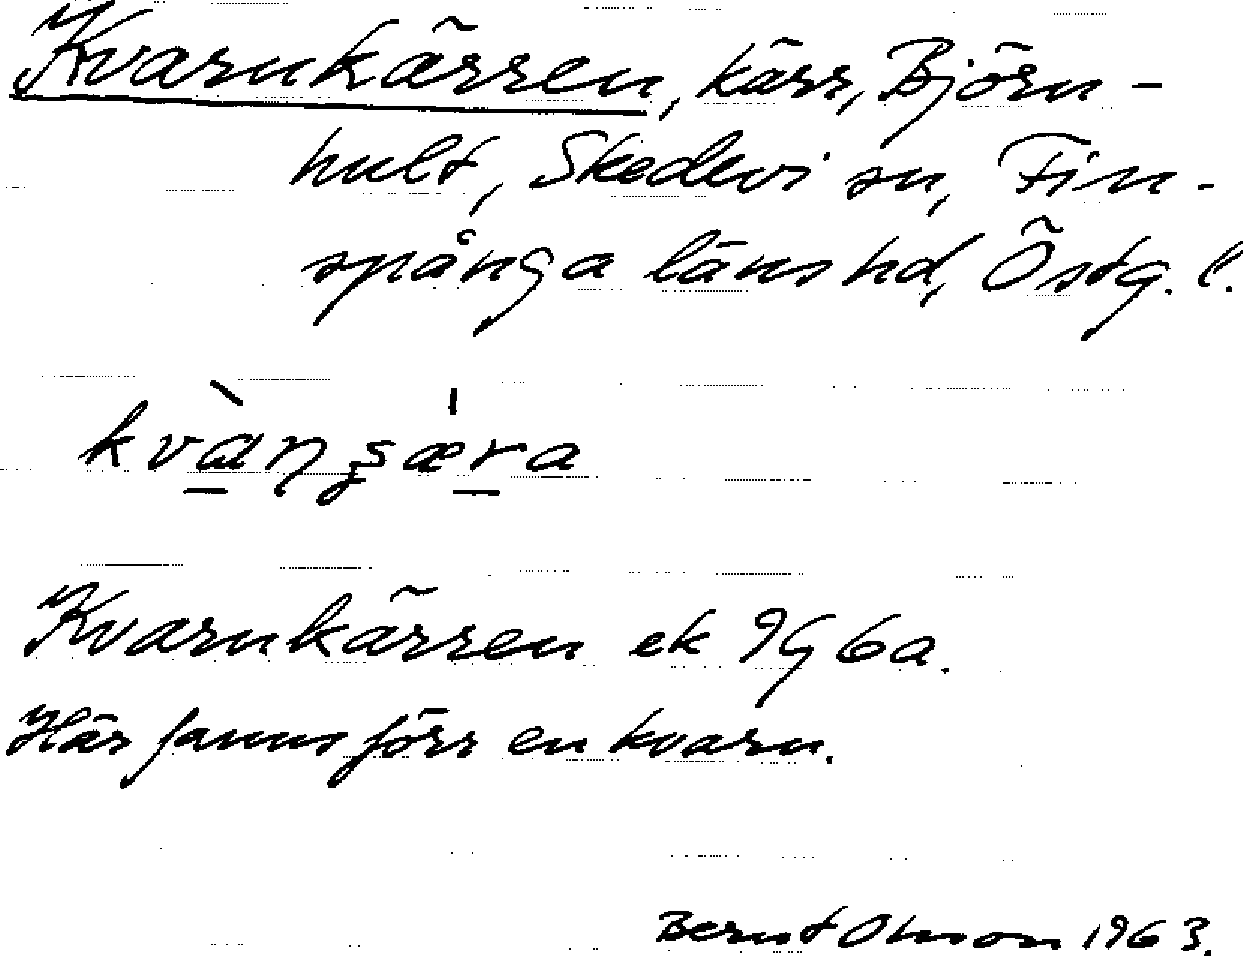 Kvarnkärren, kärr, Björn-
hult, Skedevi sn, Fin-
spånga läns hd, Östg. l.
kvàṉʂæ̍ṟa
Kvarnkärren ek 9G 6a.
Här fanns förr en kvarn.
Bernt Olsson 1963.